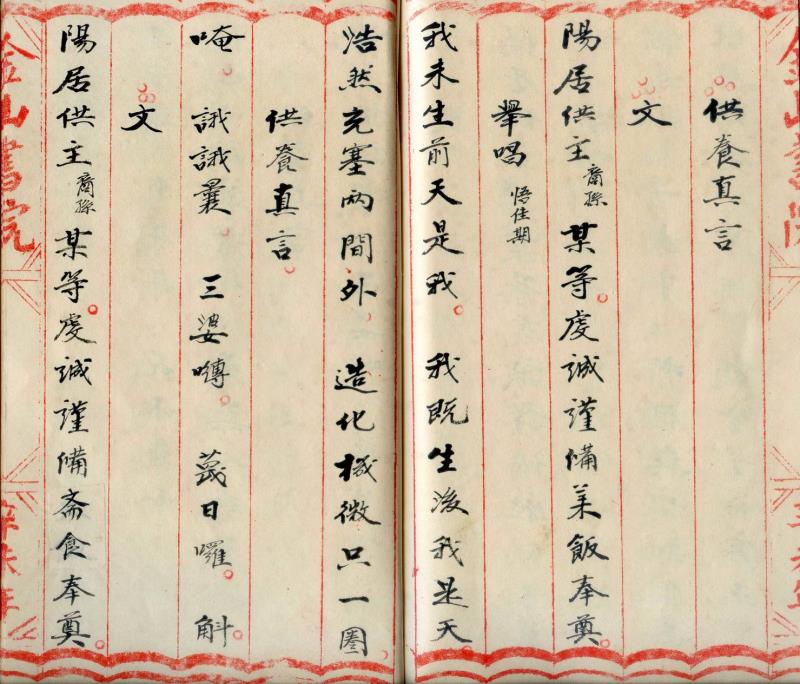 供養真言
文
陽居供主裔孫某等虔誠謹備羹飯奉奠
舉唱 悟佳期
我未生前天是我 我既生後我是天
浩然充塞兩間外 造化機微只一圈
供養真言
唵 誐誐曩 三婆嚩 韈日囉 斛
文
陽居供主裔孫某等虔誠謹備齋食奉奠
金山書院
辛未年